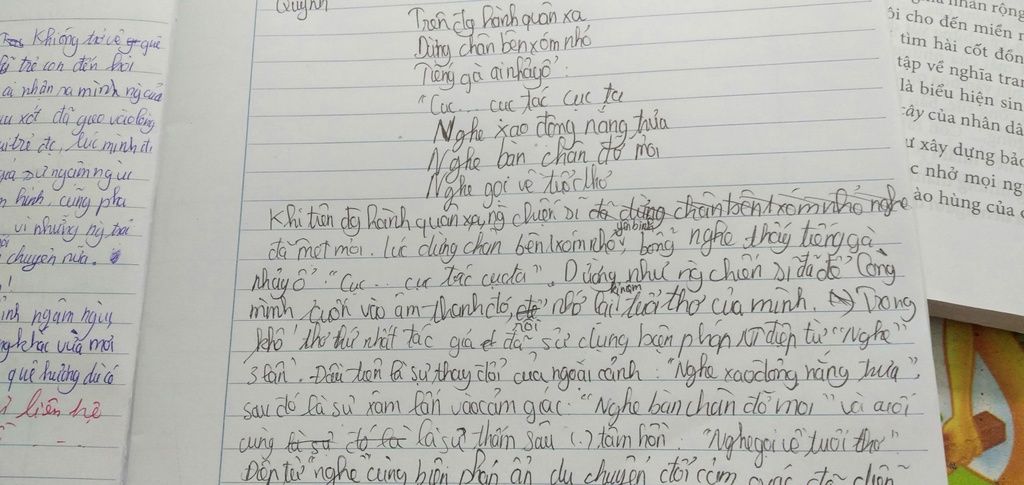 Quỳnh
Trên đg hành quân xa,
Dừng chân bên xóm nhỏ
Tiếng gà ai nhảy ổ:
"Cục... cục tác cục ta
Nghe xao động nắng trưa
Nghe bàn chân đỡ mỏi
Nghe gọi về tuổi thơ
Khi trên đg hành quân xa, ng chiến sĩ đã dừng chân bên xóm nhỏ nghe
đã mệt mỏi. lúc dừng chân bên xóm nhỏ yên bình, bỗng nghe thấy tiếng gà
nhảy ổ "Cục... cục tác cục ta". Dường như ng chiến sĩ đã để lòng
mình cuốn vào âm thanh đó, để nhớ lại kỉ niệm tuổi thơ của mình. Trong
khổ thơ thứ nhất tác giả đã sử dụng biện pháp NT điệp từ "Nghe"
3 lần. Đầu tiên là sự thay đổi của ngoại cảnh: "Nghe xao động nắng trưa",
sau đó là sự xâm lấn vào cảm giác: "Nghe bàn chân đỡ mỏi" và cuối
cùng là sự đó là là sự thấm sâu (.) tâm hồn: "Nghe gọi về tuổi thơ"
Điệp từ "nghe" cùng biện pháp ẩn dụ chuyển đổi cảm giác
Không trở về quê
trẻ con đến hỏi
ai nhận ra mình ng của
xót đã gieo vào lòng
lúc mình đi
ngậm ngùi
hình, cũng pha
vì những ng
chuyện nữa.
ngậm ngùi
vừa mới
quê hương dù có
liên hệ
nhân rộng
ôi cho đến miền
tìm hài cốt đồn
tập về nghĩa tran
là biểu hiện sin
cây của nhân dâ
ư xây dựng bảo
c nhở mọi ng
ào hùng của